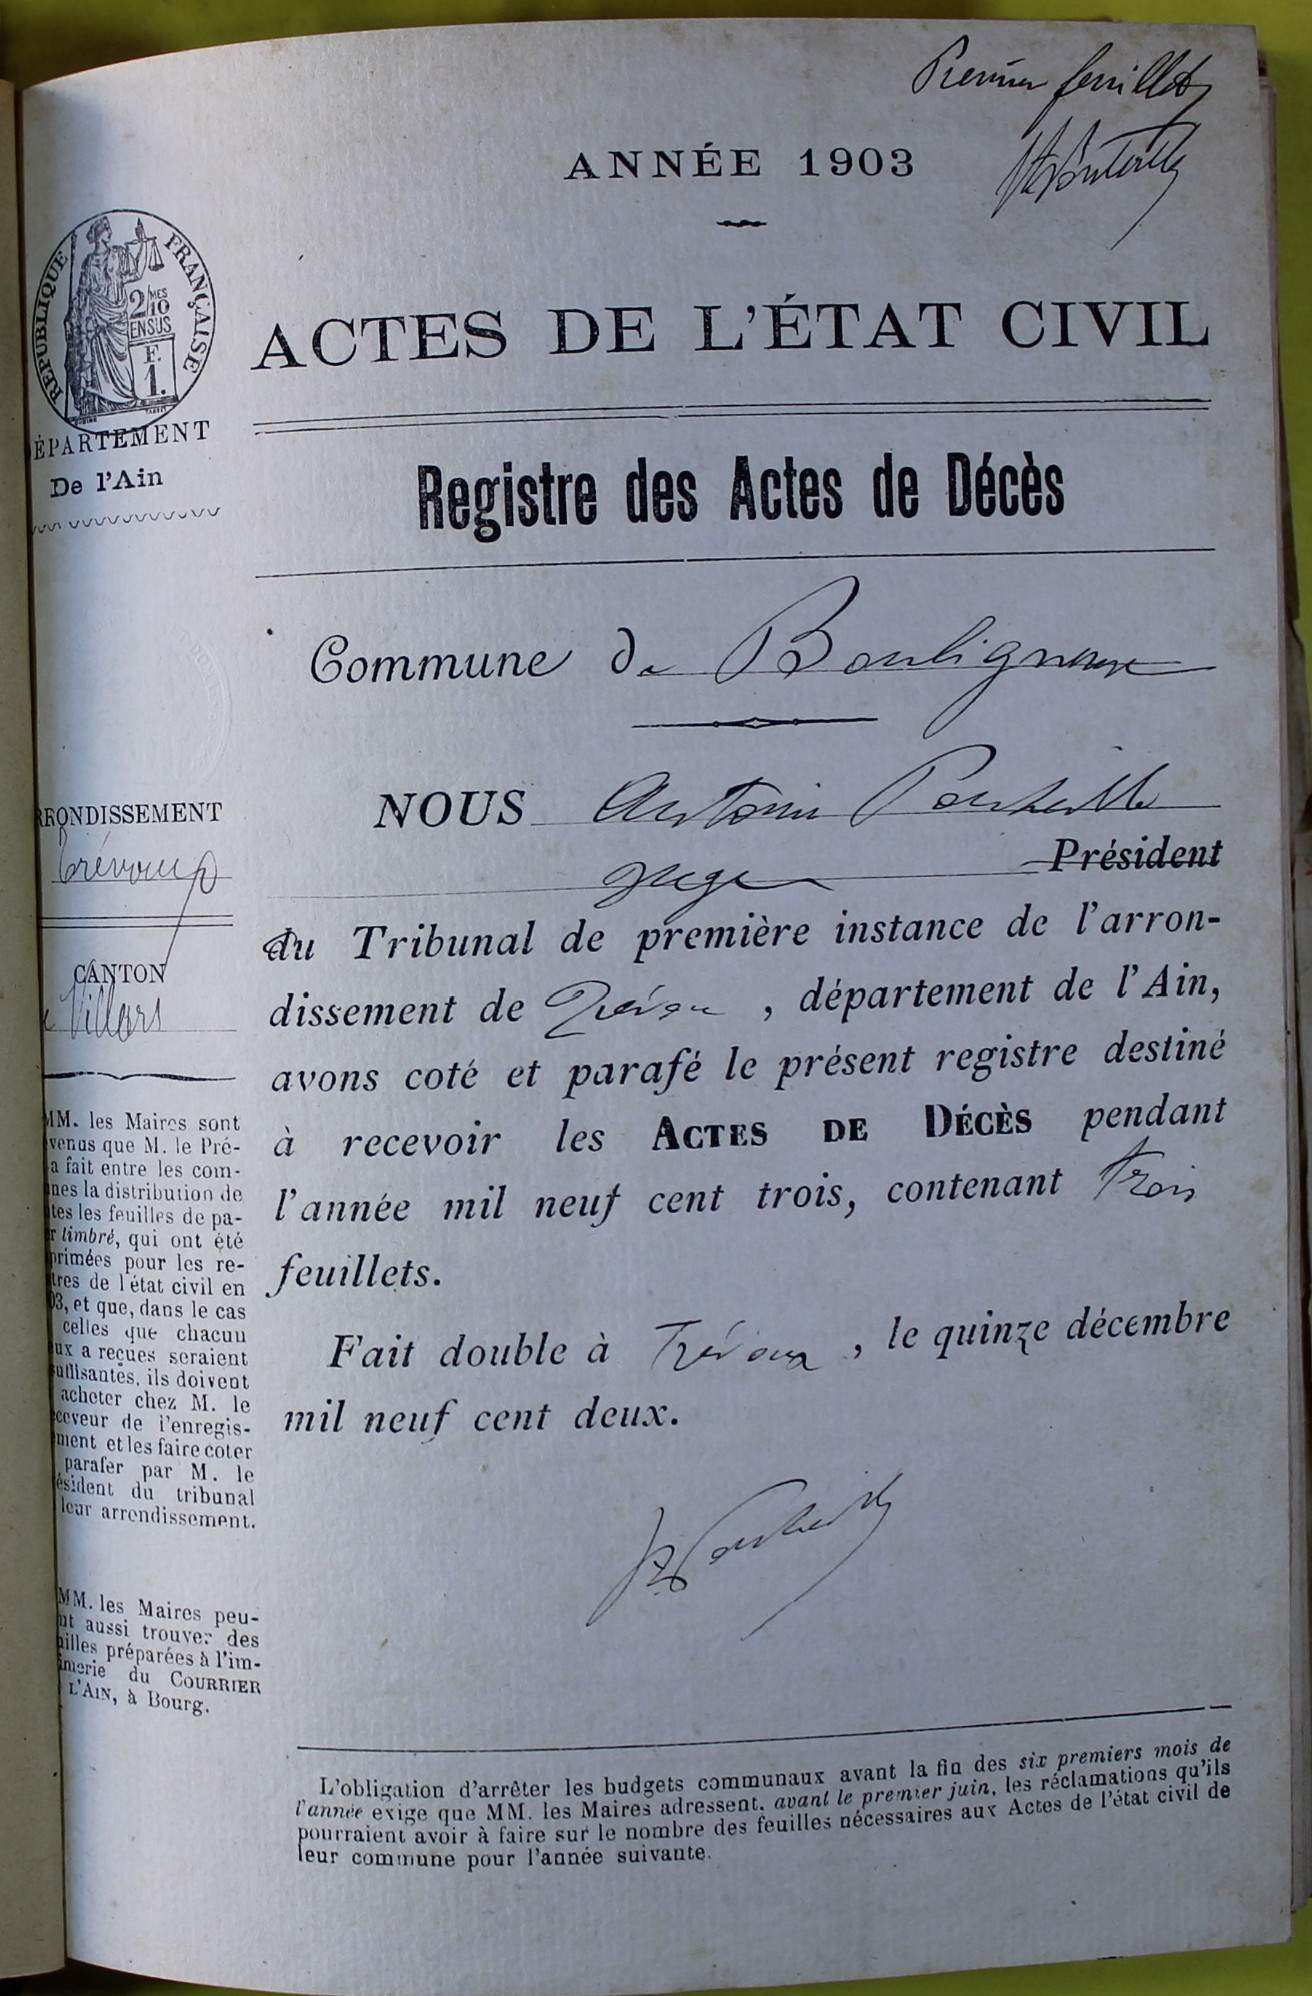 Premier feuillet
ANNÉE 1903
ACTES DE L'ÉTAT CIVIL
RÉPUBLIQUE FRANÇAISE
2/10
MES
EN SUS
F.
1.
ÉPARTEMENT
De l'Ain
Registre des Actes de Décès
Commune de Bouligneux
NOUS Antonin
juge Président
du Tribunal de première instance de l'arron-
dissement de Trévoux, département de l'Ain,
avons coté et parafé le présent registre destiné
à recevoir les ACTES DE DÉCÈS pendant
l'année mil neuf cent trois, contenant trois
feuillets.
Fait double à Trévoux, le quinze décembre
mil neuf cent deux.
RRONDISSEMENT
Trévoux
CANTON
Villars
MM. les Maires sont
venus que M. le Pré-
a fait entre les com-
nes la distribution de
tes les feuilles de pa-
r timbré, qui ont été
primées pour les re-
tres de l'état civil en
03, et que, dans le cas
celles que chacun
ux a reçues seraient
suffisantes, ils doivent
acheter chez M. le
ceveur de l'enregis-
ment et les faire coter
parafer par M. le
ésident du tribunal
leur arrondissement.
MM. les Maires peu-
nt aussi trouver des
uilles préparées à l'im-
imerie du COURRIER
L'AIN, à Bourg.
L'obligation d'arrêter les budgets communaux avant la fin des six premiers mois de
l'année exige que MM. les Maires adressent, avant le premier juin, les réclamations qu'ils
pourraient avoir à faire sur le nombre des feuilles nécessaires aux Actes de l'état civil de
leur commune pour l'année suivante.